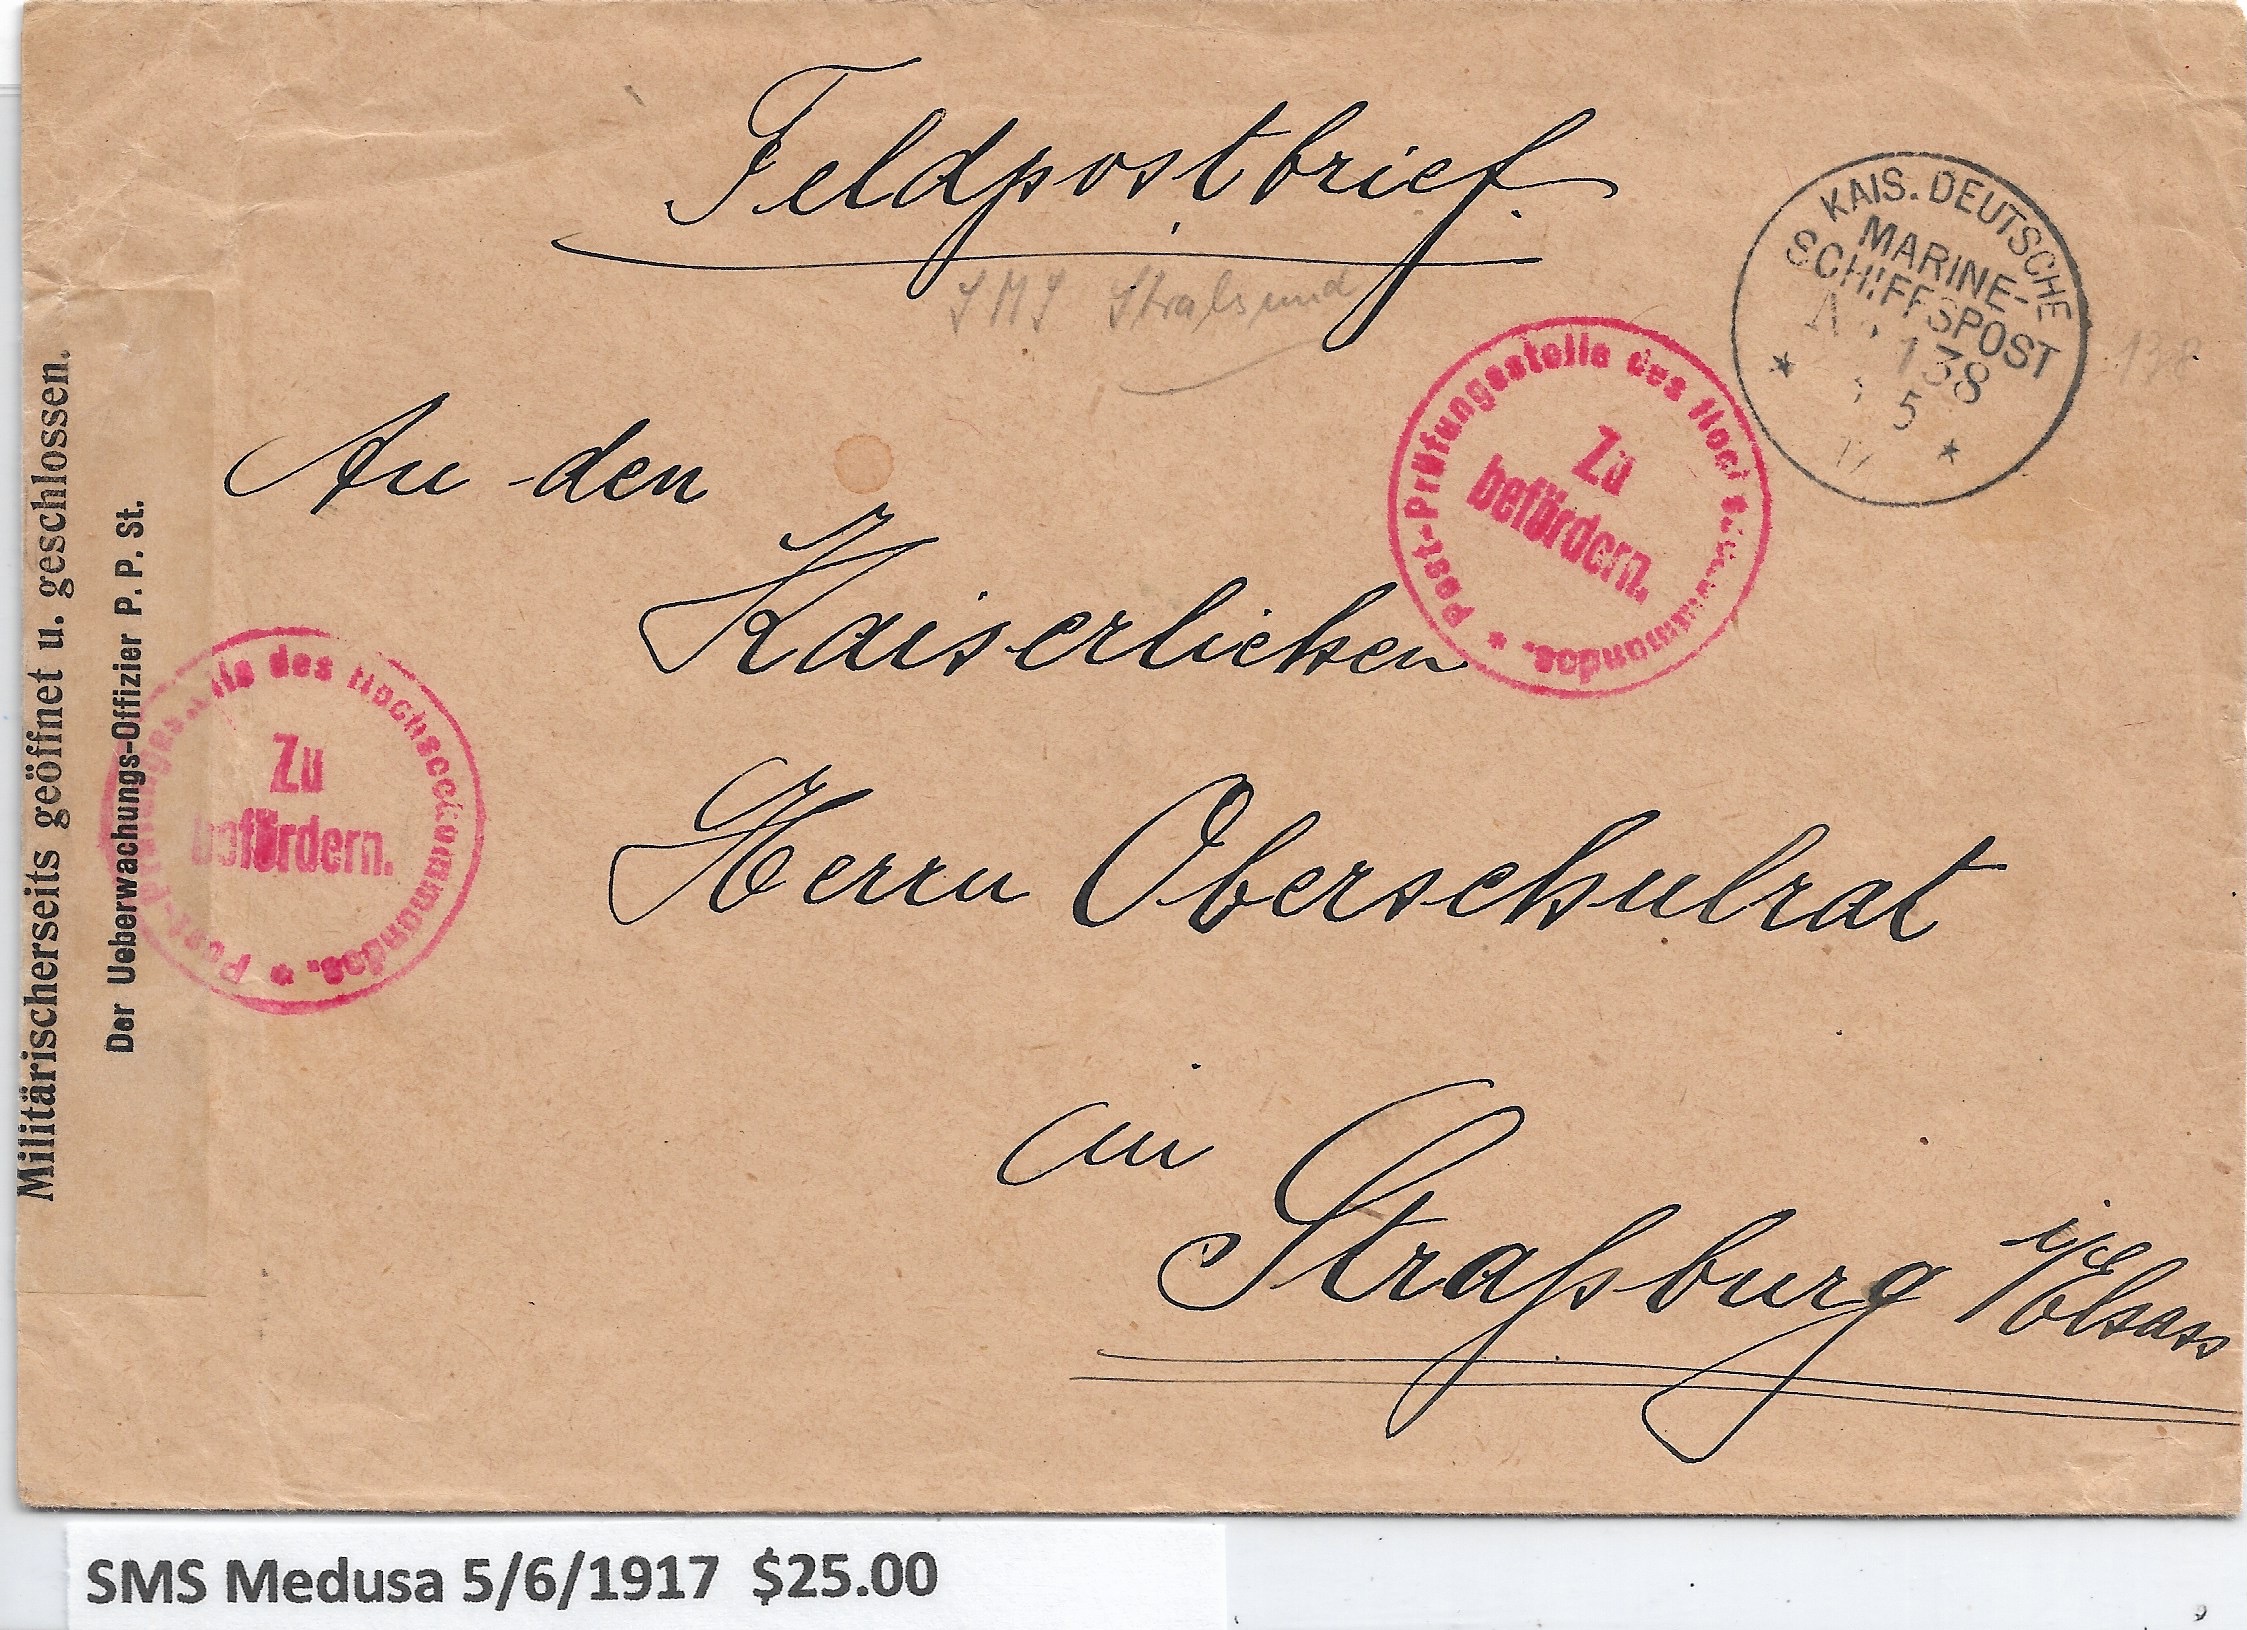 Feldpostbrief.
SMS Stralsund
KAIS. DEUTSCHE
MARINE-
SCHIFFSPOST
138
5
138
Post-Prüfungsstelle des
Zu
befördern.
An den
Kaiserlichen
Herrn Oberschulrat
in
Straßburg i/Elsass
Militärischerseits geöffnet u. geschlossen.
Der Ueberwachungs-Offizier P. P. St.
des Hochseekommandos. *
Zu
befördern.
SMS Medusa 5/6/1917 $25.00